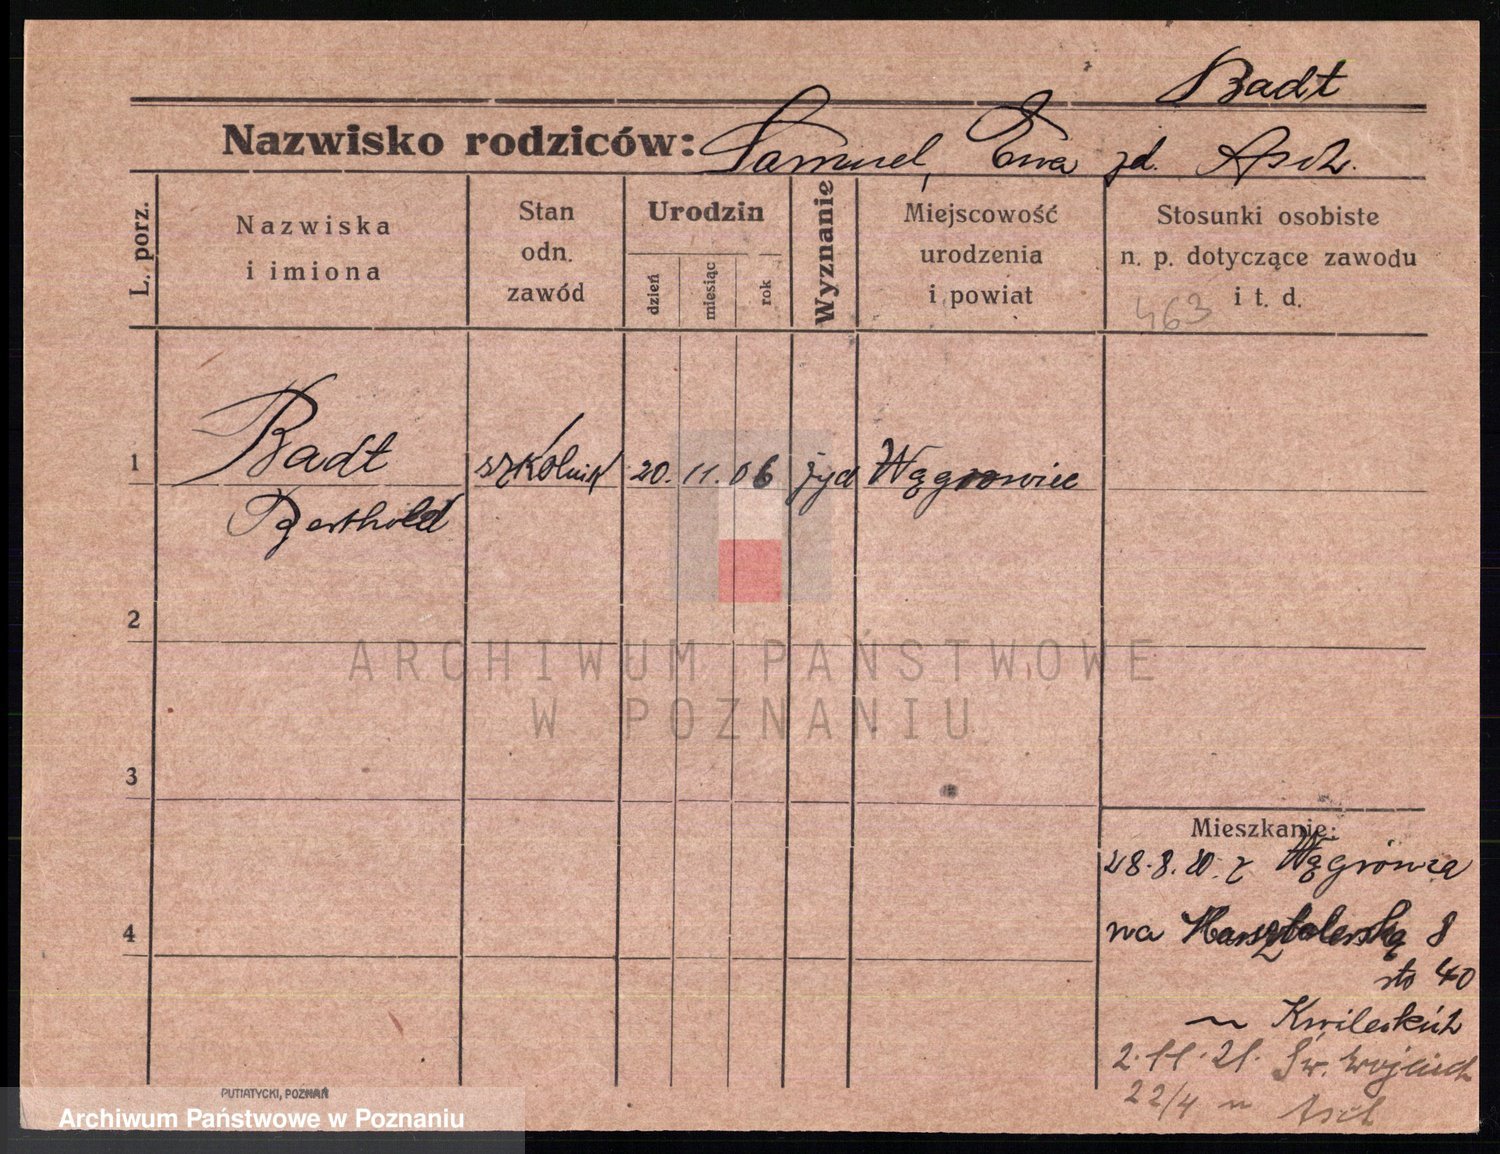 Badt
Nazwisko rodziców: Samuel, Ewa zd. Asch.
L. porz.
Nazwiska
i imiona
Stan
odn.
zawód
Urodzin
dzień
miesiąc
rok
Wyznanie
Miejscowość
urodzenia
i powiat
Stosunki osobiste
n. p. dotyczące zawodu
i t. d.
463
1 Badt szkolnik 20. 11. 06 żyd Wągrowiec
Berthold
2
ARCHIWUM PAŃSTWOWE
W POZNANIU
3
4
Mieszkanie:
28.8.20. z Wągrówca
na 8
40
2.11.21. Św. Wojciech
22/4 Asch
PUTIATYCKI, POZNAŃ
Archiwum Państwowe w Poznaniu